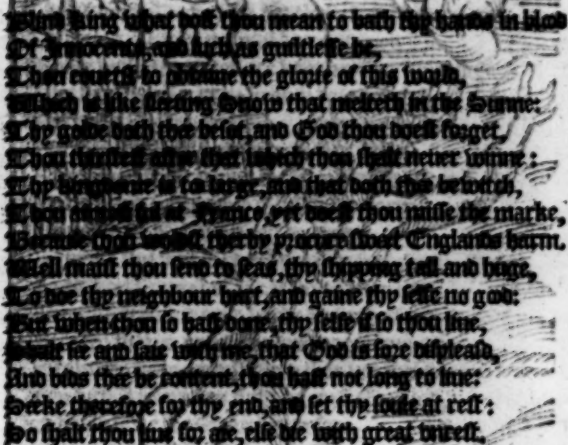 King what dost thou mean to bath thy hands in blood
Of Innocents, and such as guiltlesse be,
Thou covetst to obtaine the glorie of this world,
Which is like fleeting Snow that melteth in the Sunne:
Thy golde doth thee besot, and God thou doest forget,
Thou that which thou shalt never winne:
Thy is to large, and that doth thee bewitch,
Thou at France, yet doest thou misse the marke,
Because thou thereby procure sweet Englands harm.
Well maist thou send to seas, thy shipping tall and huge,
To doe thy neighbour hurt, and gaine thy selfe no good:
But when thou so hast done, thy selfe if so thou live,
Shalt lie and saie with me, that God is sore displeasd,
And bids thee be content, thou hast not long to live:
Seeke therefore for thy end, and set thy soule at rest:
So shalt thou live for aie, else die with great unrest.